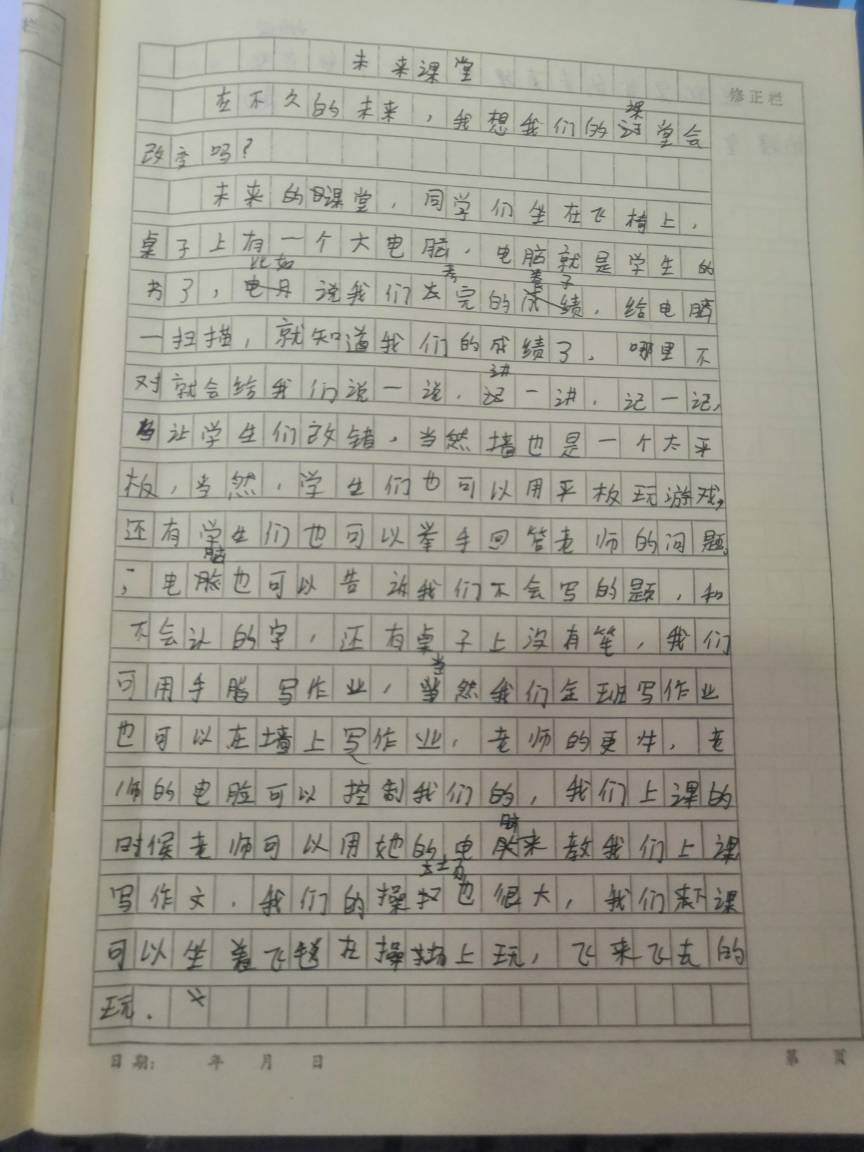 未来课堂
修正栏
在不久的未来，我想我们的课堂会
改变吗？
未来的课堂，同学们坐在飞椅上，
桌子上有一个大电脑，电脑就是学生的
书了，比如说我们考完的卷子，给电脑
一扫描，就知道我们的成绩了，哪里不
对就会给我们说一说，讲一讲，记一记，
让学生们改错，当然墙也是一个太平
板，当然，学生们也可以用平板玩游戏，
还有学生们也可以举手回答老师的问题，
电脑也可以告诉我们不会写的题，和
不会认的字，还有桌子上没有笔，我们
可用手脑写作业，当然我们全班写作业
也可以在墙上写作业，老师的更牛，老
师的电脑可以控制我们的，我们上课的
时候老师可以用她的电脑来教我们上课
写作文，我们的操场也很大，我们下课
可以坐着飞毯在操场上玩，飞来飞去的
玩．
日期： 年 月 日
第 页